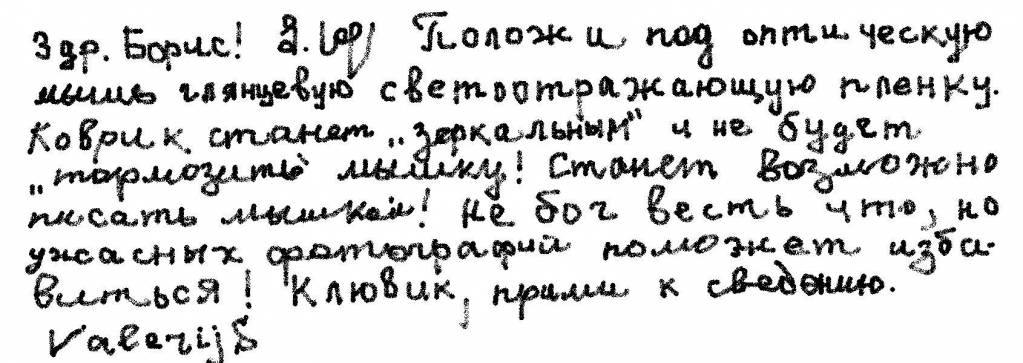 Здр. Борис! Положи под оптическую
мышь глянцевую светоотражающую пленку.
Коврик станет „зеркальным" и не будет
„тормозить" мышку! Станет возможно
писать мышкой! Не бог весть что, но
ужасных фотографий поможет изба-
виться! Клювик, прими к сведению.
Valerij S